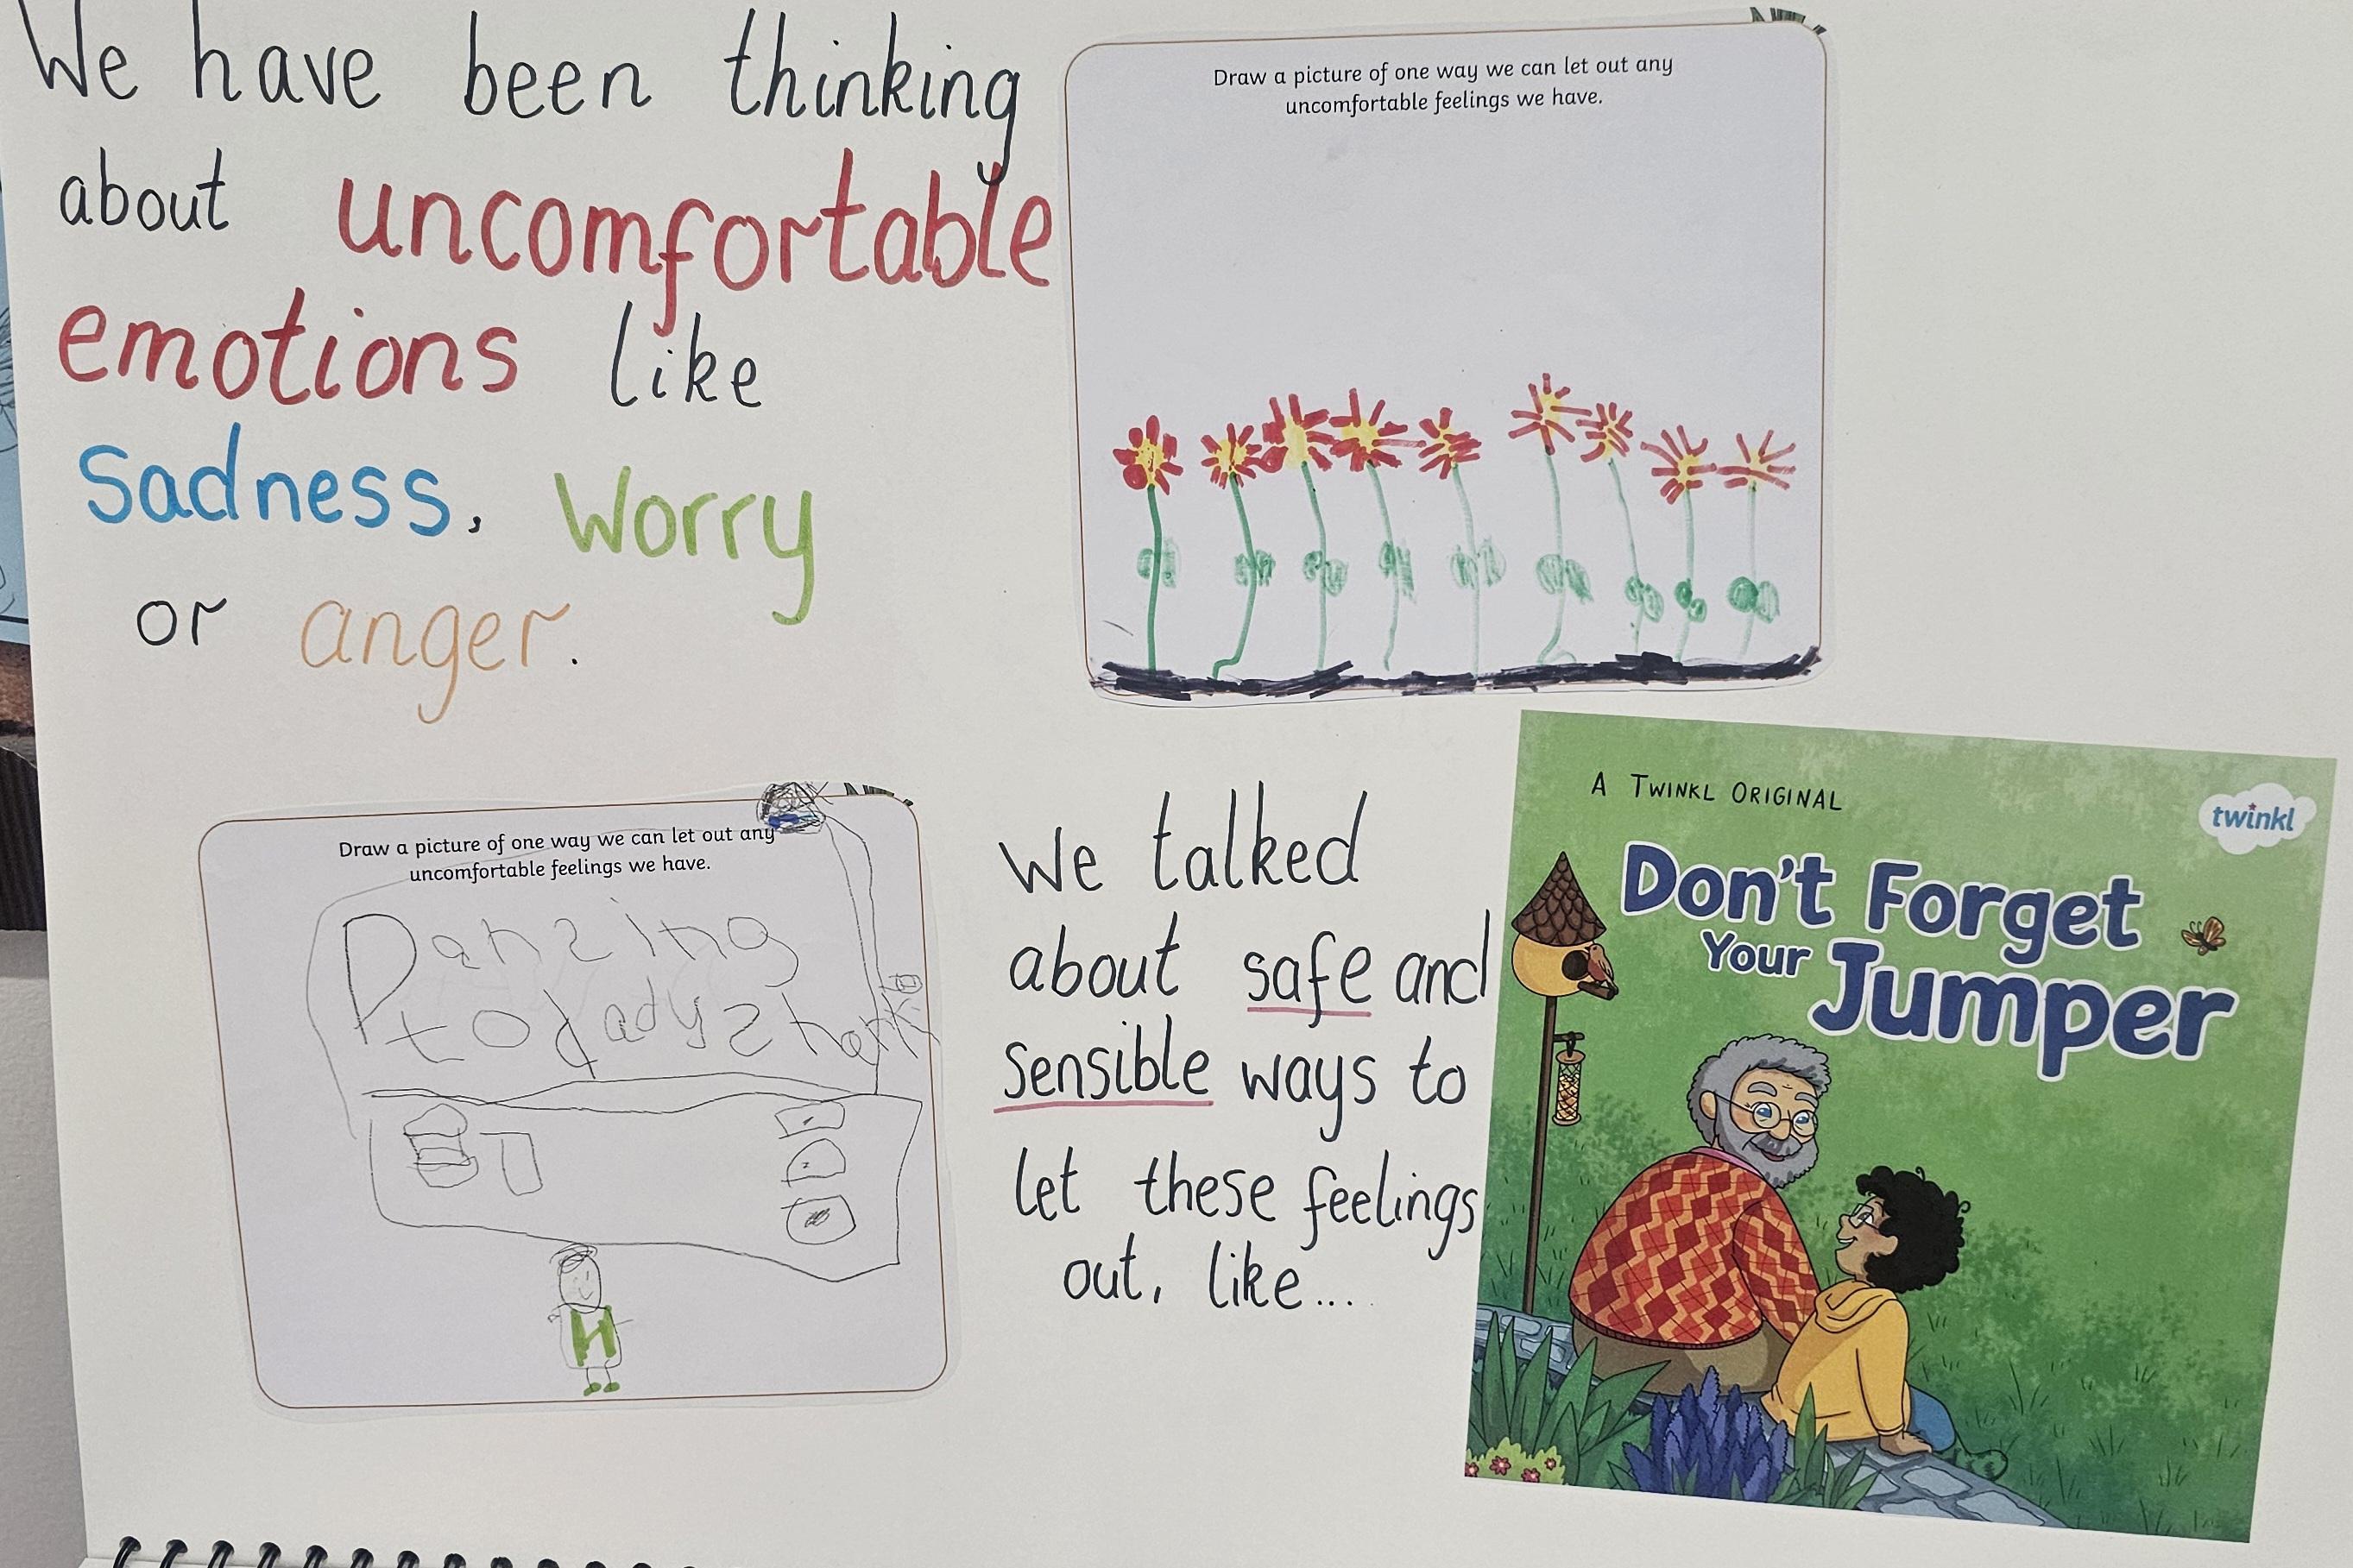 We have been thinking
about uncomfortable
emotions like
sadness, worry
or anger.
Draw a picture of one way we can let out any
uncomfortable feelings we have.
Draw a picture of one way we can let out any
uncomfortable feelings we have.
Danzing
to dadyshark
We talked
about safe and
sensible ways to
let these feelings
out, like...
A TWINKL ORIGINAL
twinkl
Don't Forget
Your Jumper